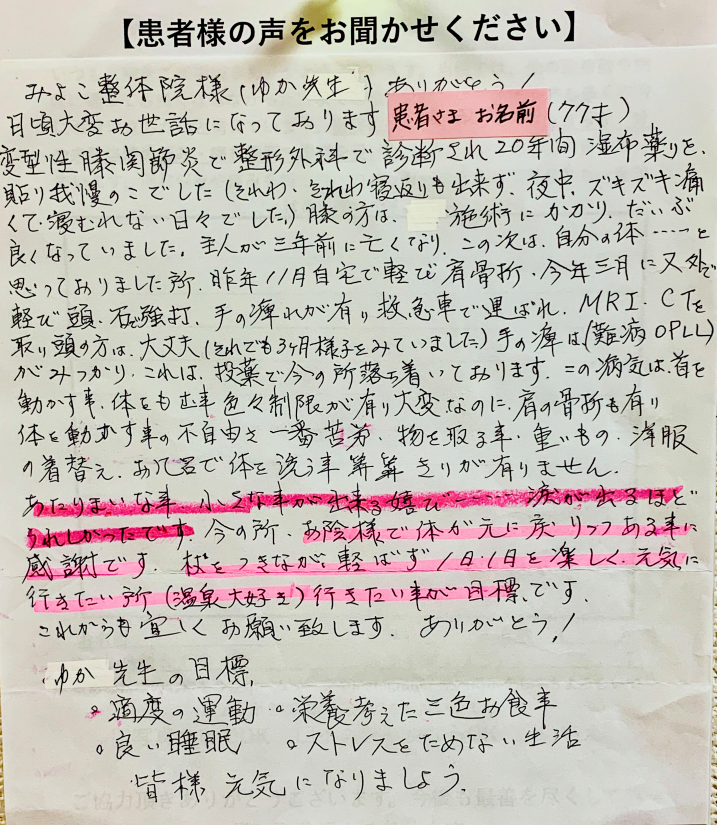 【患者様の声をお聞かせください】
みよこ整体院様(ゆか先生 )ありがとう!
日頃大変お世話になっております 患者さま お名前 (77才)
変型性膝関節炎で整形外科で診断され20年間 湿布薬りを、
貼り我慢のこでした(それわ、それわ寝返りも出来ず、夜中、ズキズキ痛
くて、寝むれない日々でした。)膝の方は、 施術にかかり、だいぶ
良くなっていました。主人が三年前に亡くなり、この次は、自分の体……と
思っておりました所、昨年11月自宅で軽び肩骨折、今年三月に又外で
軽び頭、石で強打、手の痺れが有り救急車で運ばれ、MRI、CTを
取り頭の方は、大丈夫(それでも3ヶ月様子をみていました)手の痺は(難病OPLL)
がみつかり、これは、投薬で今の所落ち着いております。この病気は、首を
動かす事、体をもむ事色々制限が有り大変なのに、肩の骨折も有り
体を動かす事の不自由さ一番苦労、物を取る事・重いもの・洋服
の着替え、お風呂で体を洗う事等等きりが有りません。
あたりまいな事 小さな事が出来る嬉び…… 涙が出るほど
うれしかったです。今の所、お陰様で体が元に戻りつつある事に
感謝です。杖をつきながら、軽ばず1日、1日を楽しく、元気に
行きたい所(温泉大好き)行きたい事が目標、です。
これからも宜しくお願い致します。ありがとう!
ゆか 先生の目標、
◦適度の運動 ◦栄養考えた三色お食事
◦良い睡眠 ◦ストレスをためない生活
皆様元気になりましょう。